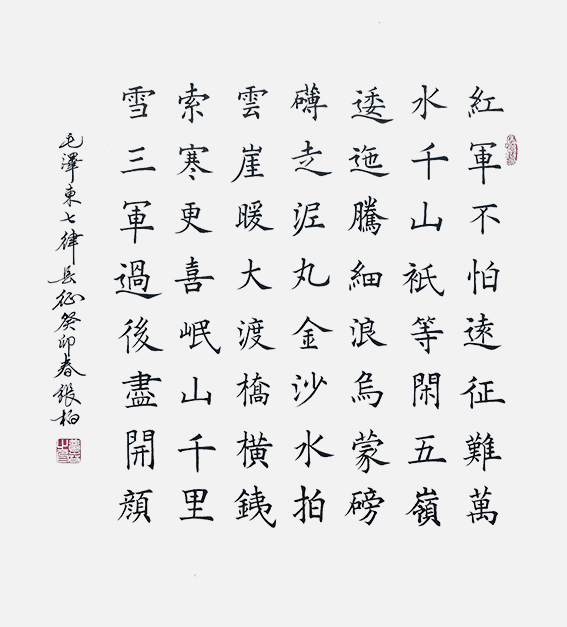 紅軍不怕遠征難萬
水千山衹等閑五嶺
逶迤騰細浪烏蒙磅
礴走泥丸金沙水拍
雲崖暖大渡橋橫銕
索寒更喜岷山千里
雪三軍過後盡開顏
毛澤東七律長征癸卯春張柏